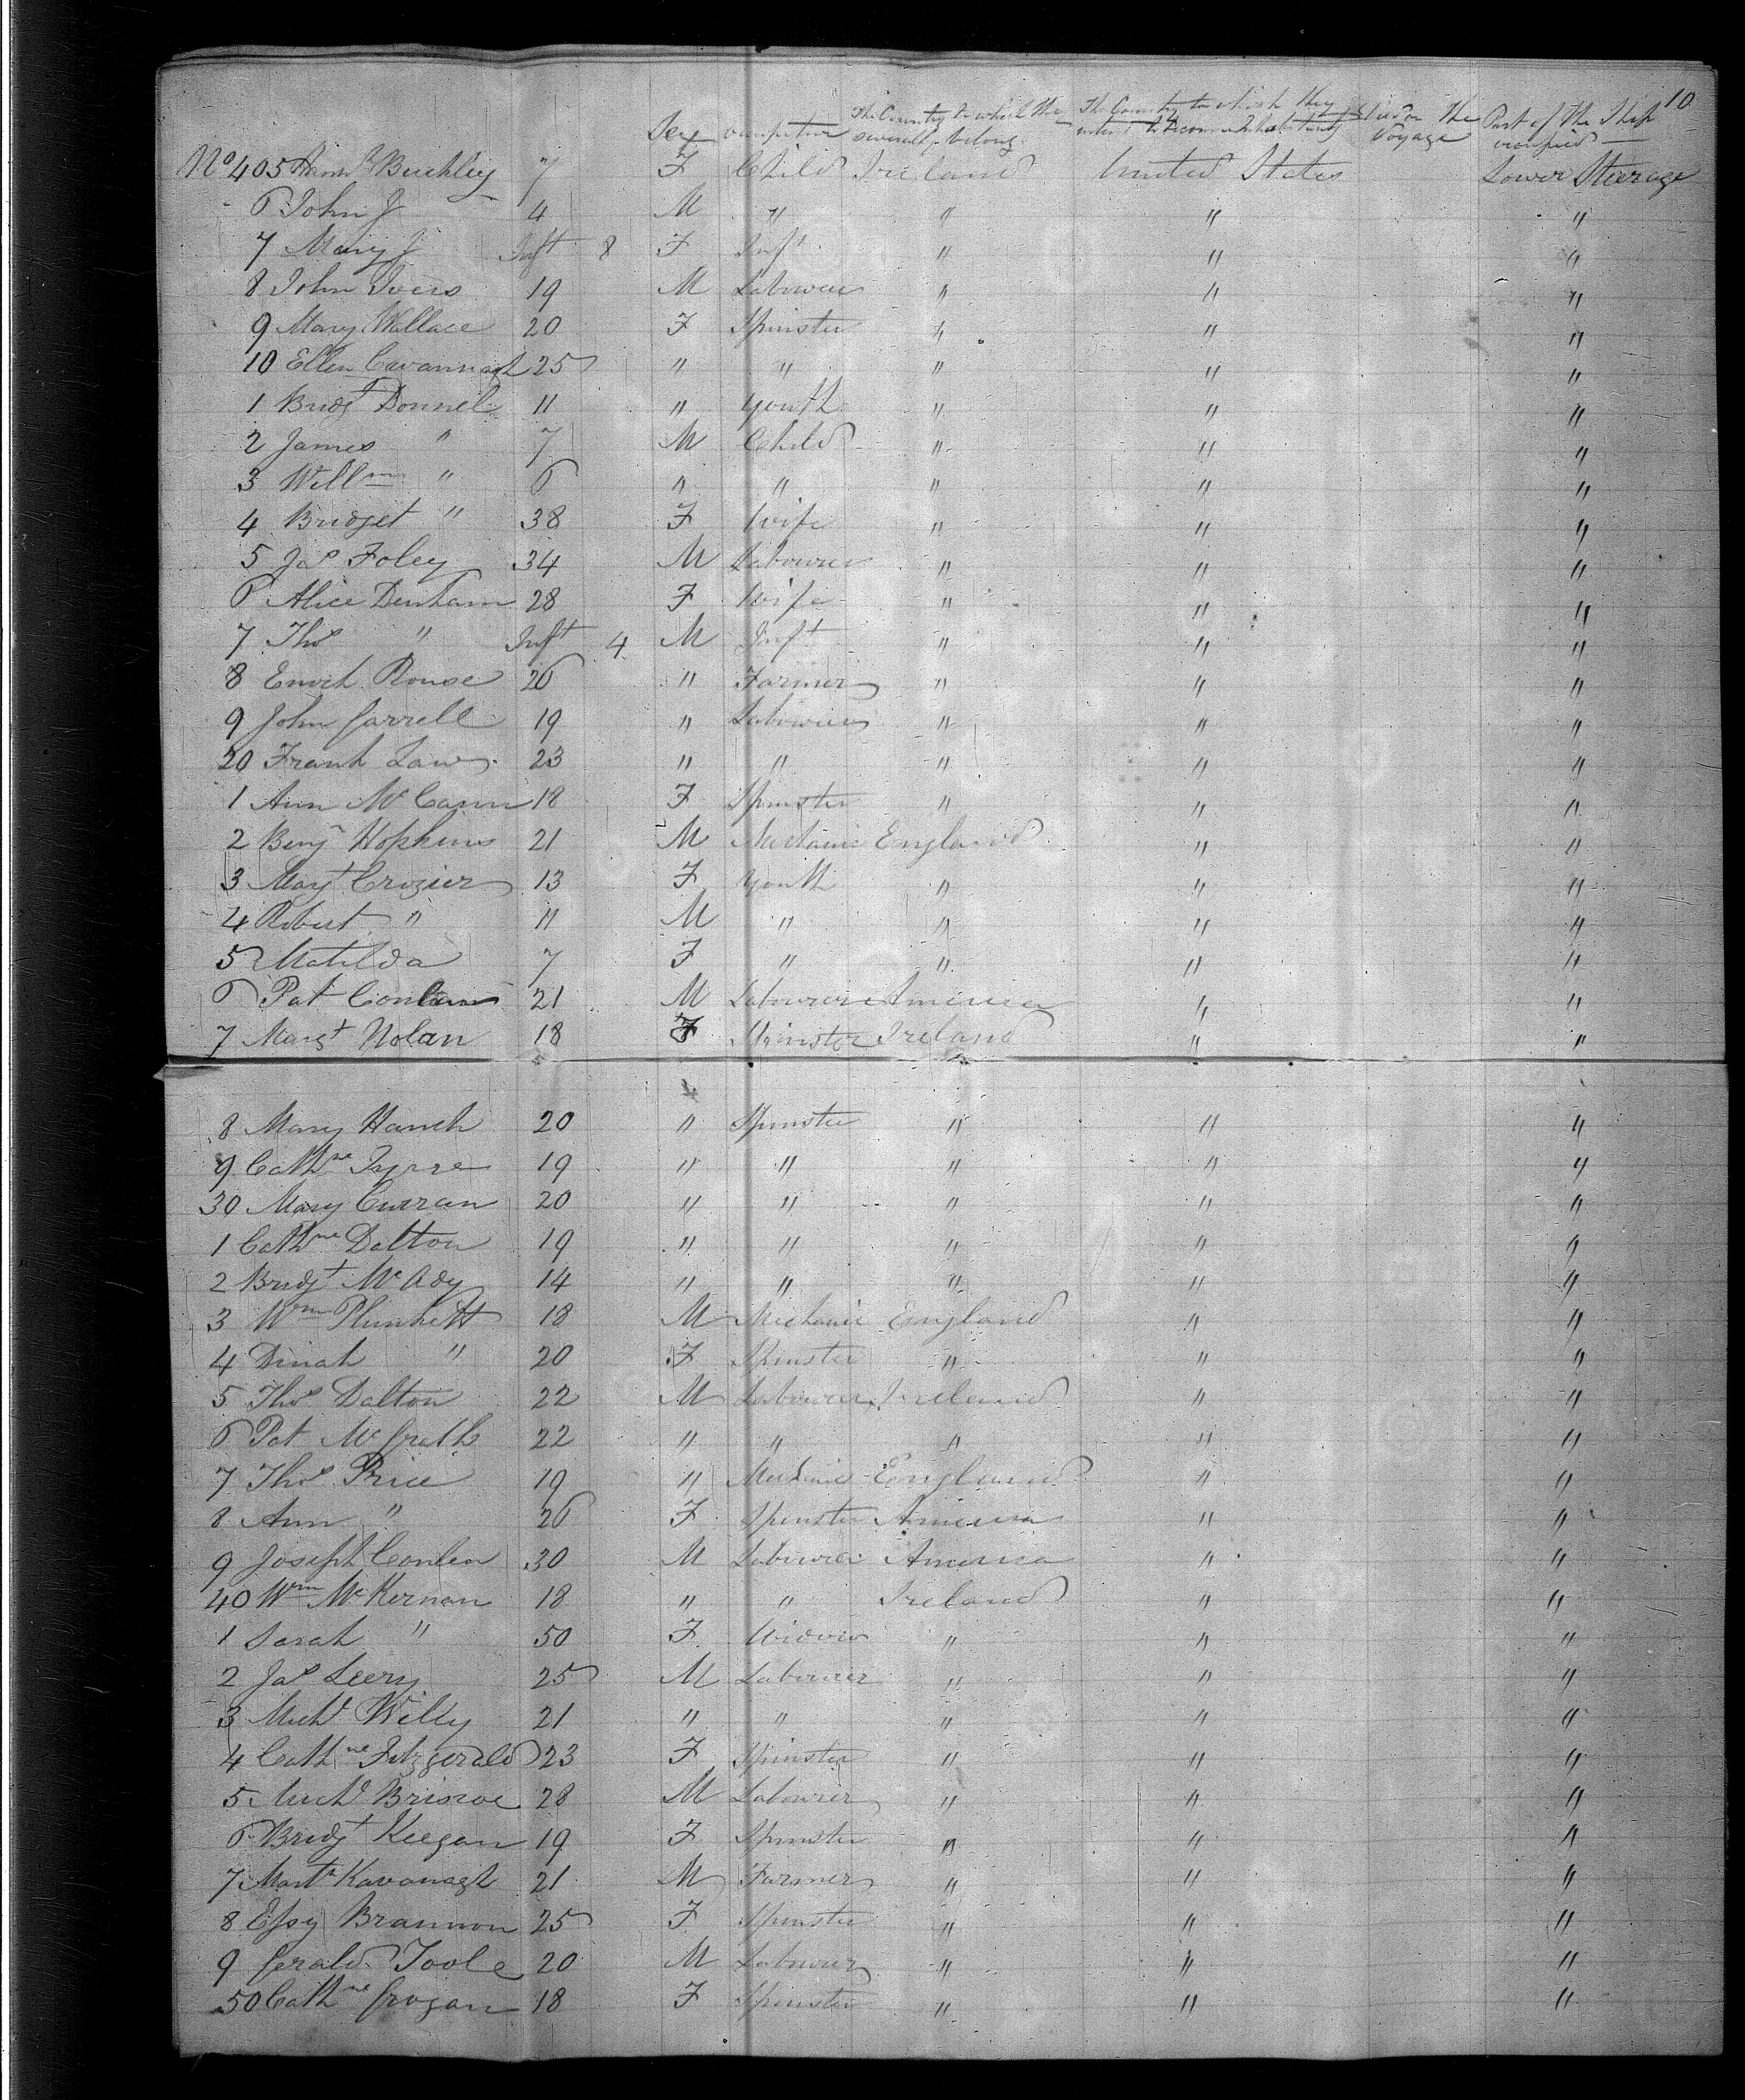 10
Sex occupation The Country to which they severally belong The Country to which they intend to become Inhabitants Died on the Voyage Part of the Ship occupied
No 405 Buckley 7 F Child Ireland United States Lower Steerage
6 John J 4 M " " " "
7 Mary J Inft 8 F Inft " " "
8 John Ivers 19 M Labourer " " "
9 Mary Wallace 20 F Spinster " " "
10 Ellen Cavannagh 25 " " " " "
1 Bridgt Donnel 11 " Youth " " "
2 James " 7 M Child " " "
3 Willm " 6 " " " " "
4 Bridget " 38 F Wife " " "
5 Jas Foley 34 M Labourer " " "
6 Alice Denham 28 F Wife " " "
7 Thos " Inft 4 M Inft " " "
8 Enoch Rouse 26 " Farmer " " "
9 John Garrell 19 " Labourer " " "
20 Frank Law 23 " " " " "
1 Ann McCann 18 F Spinster " " "
2 Benjn Hopkins 21 M Mechanic England " "
3 Margt Crozier 13 F Youth " " "
4 Robert " 11 M " " " "
5 Matilda 7 F " " " "
6 Pat Conlan 21 M Labourer America " "
7 Margt Nolan 18 F Spinster Ireland " "
8 Mary Hanch 20 " Spinster " " "
9 Cathne 19 " " " " "
30 Mary Curran 20 " " " " "
1 Cathne Dalton 19 " " " " "
2 Bridgt McAdy 14 " " " " "
3 Wm Plunkett 18 M Mechanic England " "
4 Dinah " 20 F Spinster " " "
5 Thos Dalton 22 M Labourer Ireland " "
6 Pat McGrath 22 " " " " "
7 Thos Price 19 " Mechanic England " "
8 Ann " 26 F Spinster America " "
9 Joseph Conlen 30 M Labourer America " "
40 Wm McKernan 18 " " Ireland " "
1 Sarah " 50 F Widow " " "
2 Jas Leery 25 M Labourer " " "
3 Michl Willy 21 " " " " "
4 Cathne Fitzgerald 23 F Spinster " " "
5 Michl Briscoe 28 M Labourer " " "
6 Bridgt Keegan 19 F Spinster " " "
7 Martn Kavanagh 21 M Farmer " " "
8 Essy Brannon 25 F Spinster " " "
9 Gerald Toole 20 M Labourer " " "
50 Cathne Grogan 18 F Spinster " " "